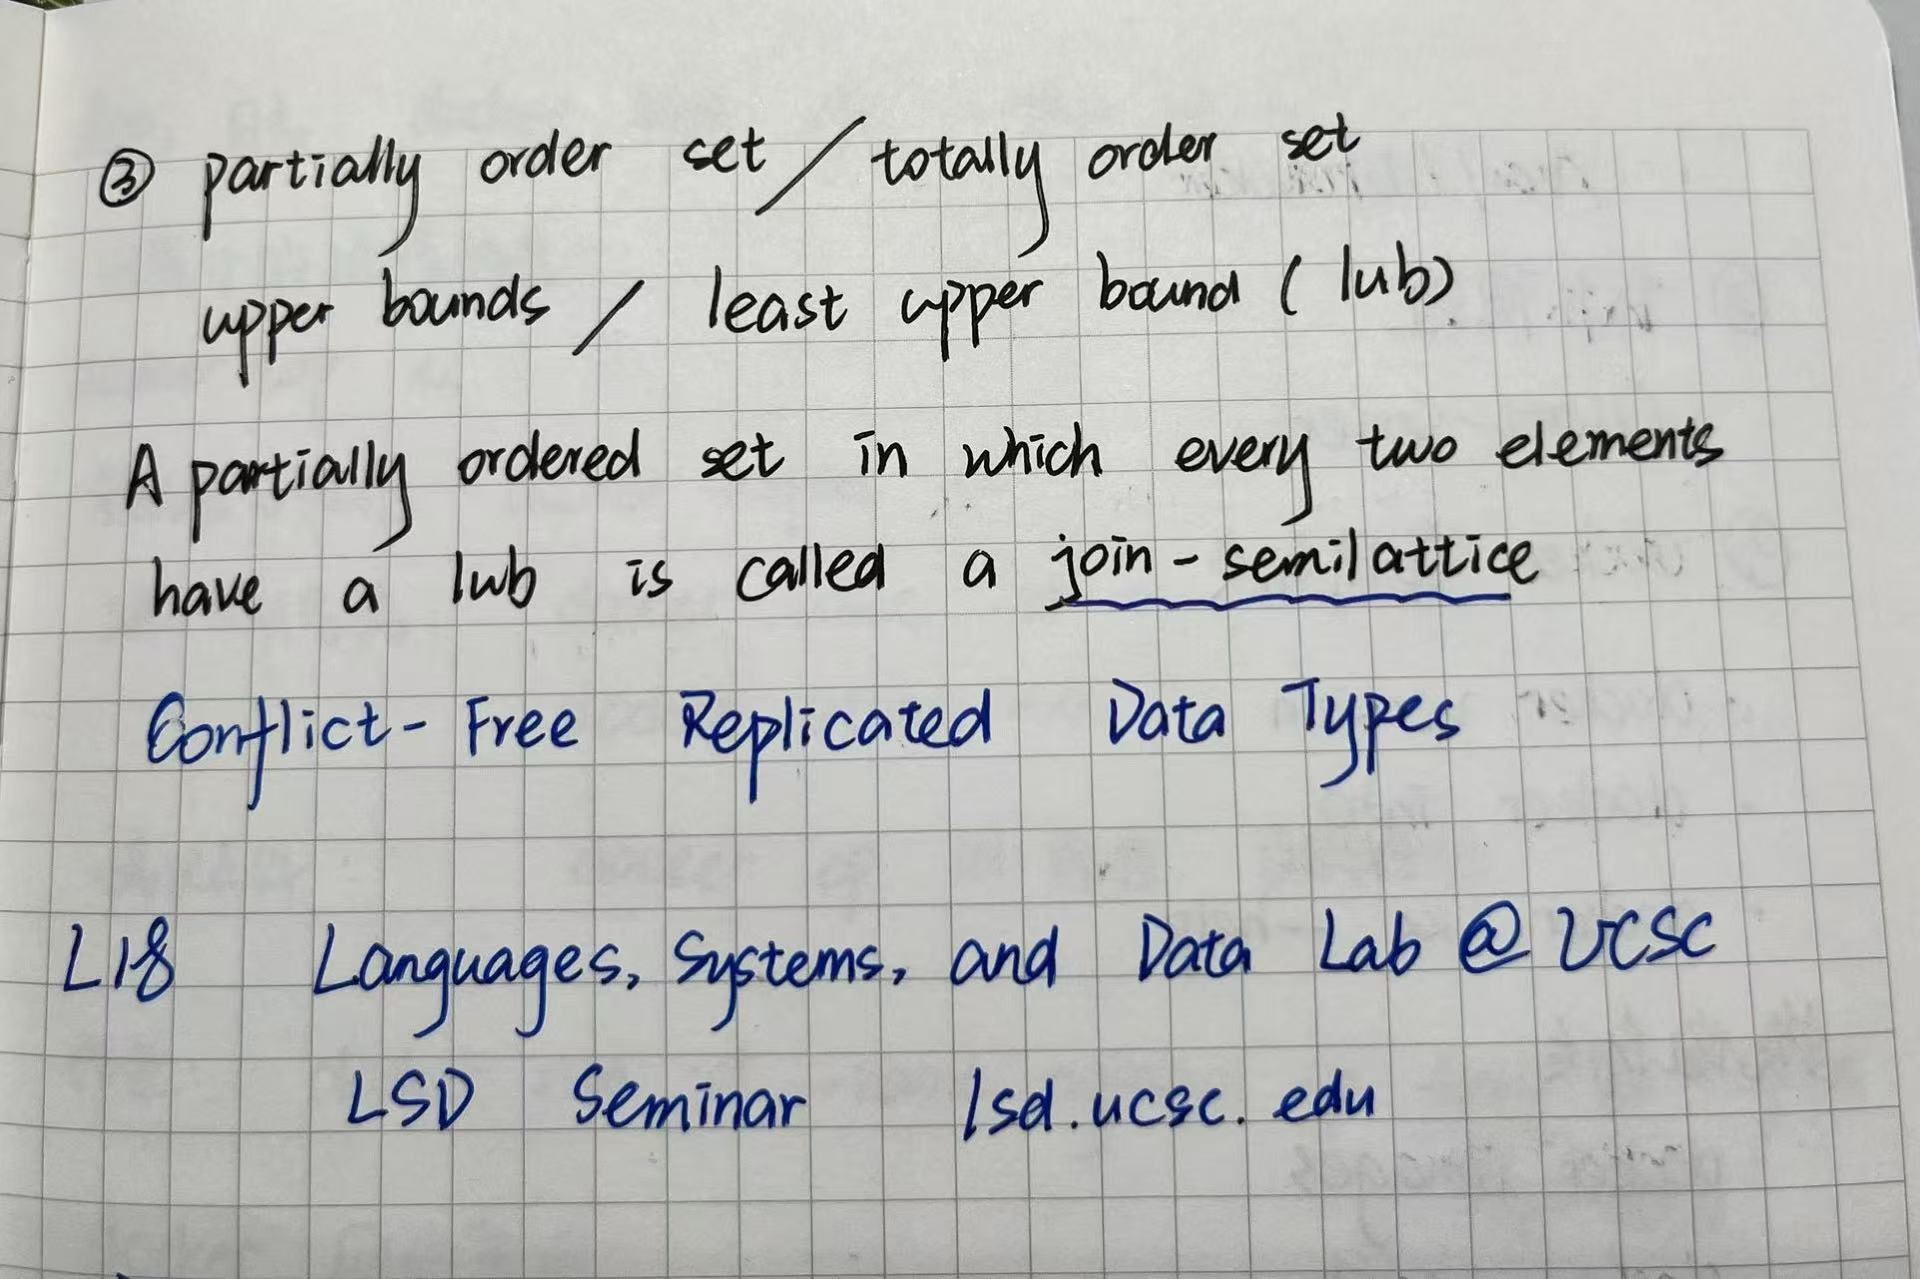 ③ partially order set / totally order set
upper bounds / least upper bound ( lub)
A partially ordered set in which every two elements
have a lub is called a join - semilattice
Conflict - Free Replicated Data Types
L18 Languages, Systems, and Data Lab @ UCSC
LSD Seminar lsd.ucsc.edu